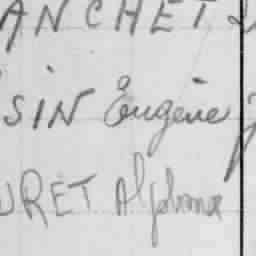 ANCHET
SIN Eugène
URET Alphonse